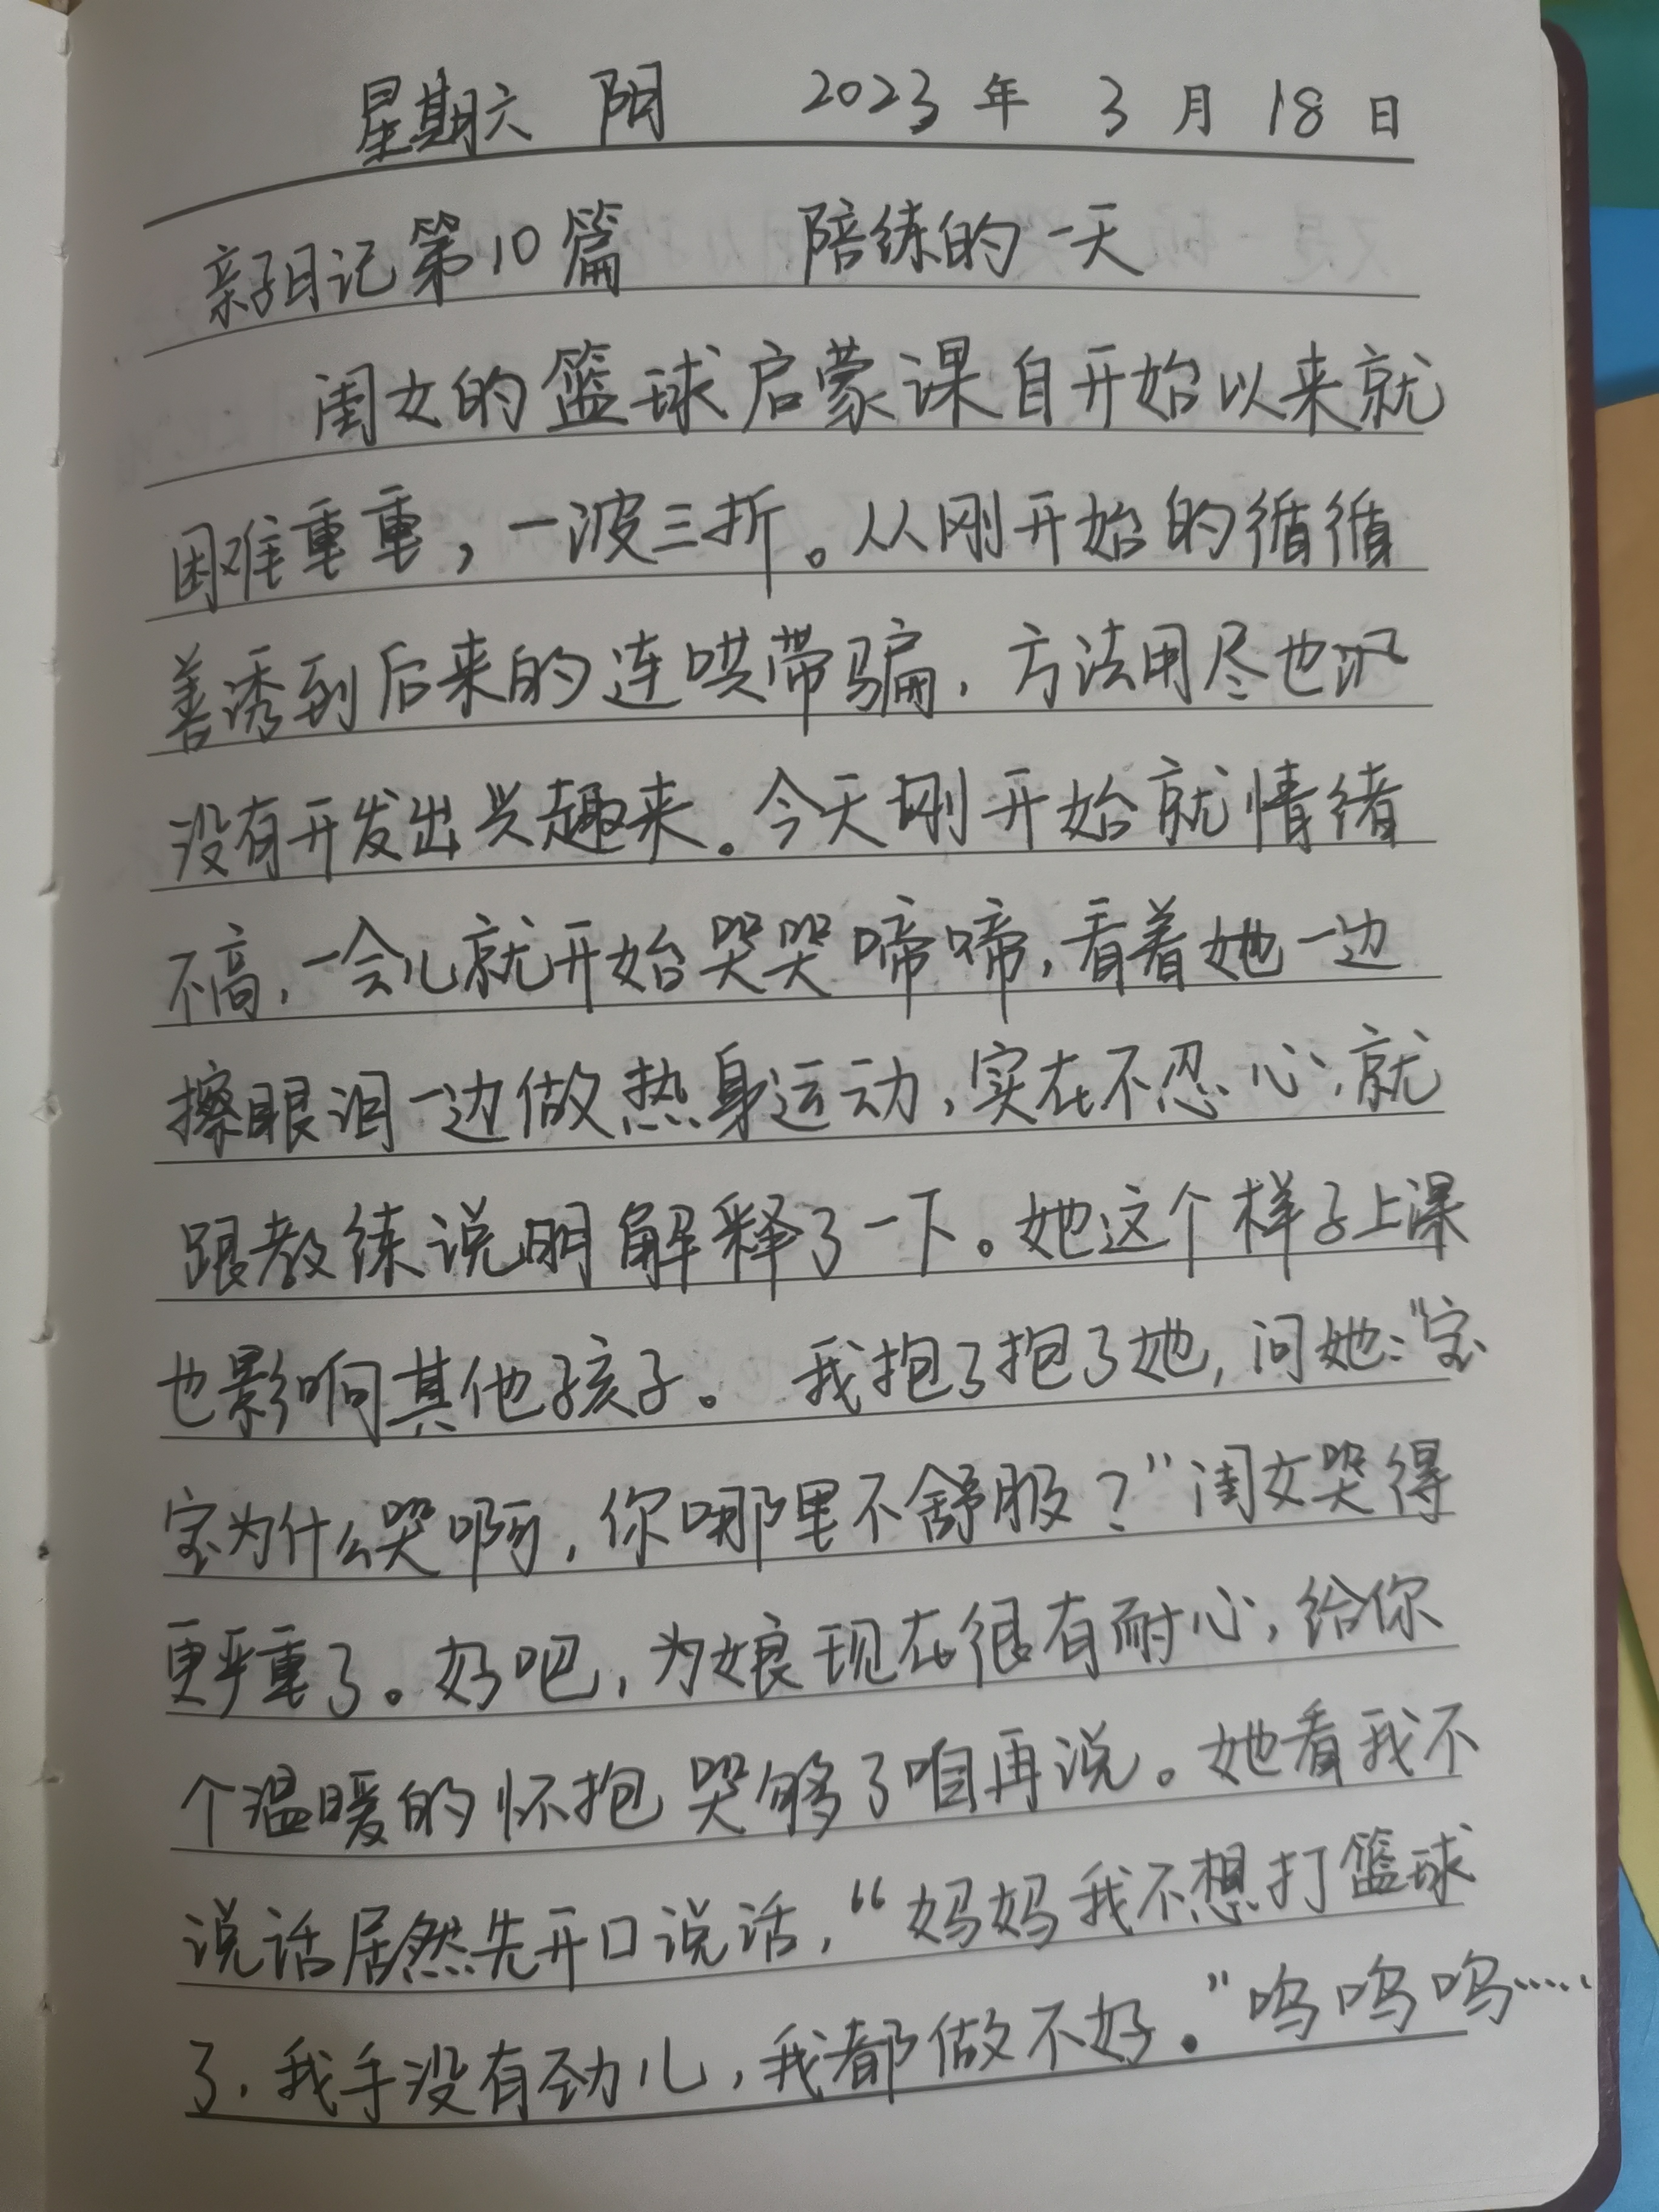 星期六 阴 2023年3月18日
亲子日记第10篇 陪练的一天
闺女的篮球启蒙课自开始以来就
困难重重，一波三折。从刚开始的循循
善诱到后来的连哄带骗，方法用尽也
没有开发出兴趣来。今天刚开始就情绪
不高，一会儿就开始哭哭啼啼，看着她一边
擦眼泪一边做热身运动，实在不忍心，就
跟教练说明解释了一下。她这个样子上课
也影响其他孩子。我抱了抱了她，问她：“宝
宝为什么哭啊，你哪里不舒服？”闺女哭得
更严重了。好吧，为娘现在很有耐心，给你
个温暖的怀抱哭够了咱再说。她看我不
说话居然先开口说话，“妈妈我不想打篮球
了，我手没有劲儿，我都做不好。”呜呜呜……